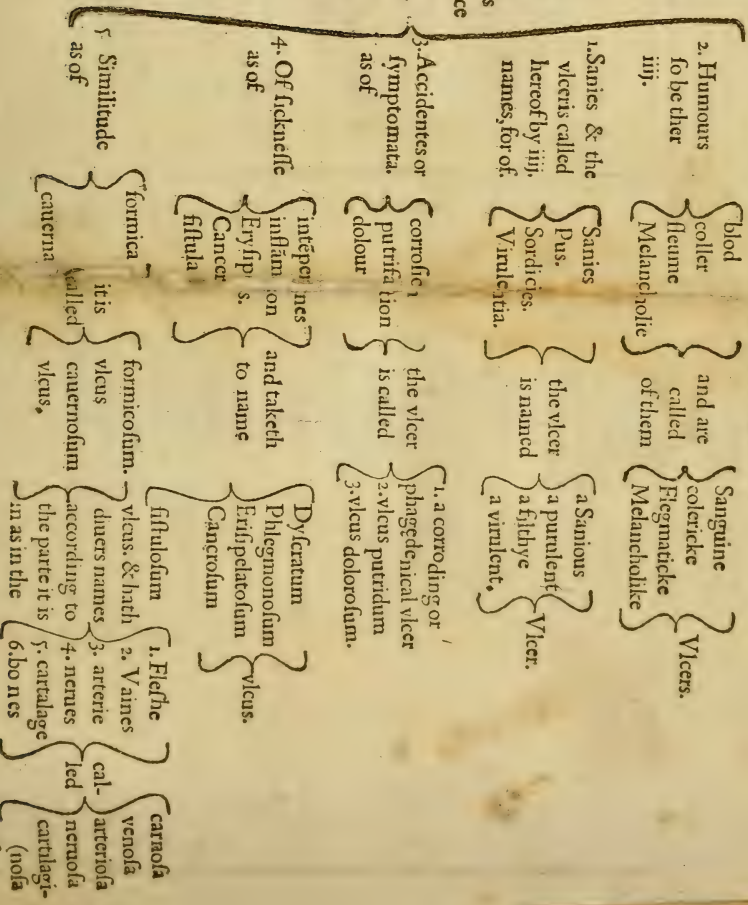 2. Humours
ſo be ther
iiij.
blod
coller
fleume
Melancholie
and are
called
of them
Sanguine
colericke
Flegmaticke
Melancholike
Vlcers.
1. Sanies & the
vlceris called
hereof by iiij.
names, for of.
Sanies
Pus.
Sordicies.
Virulentia.
the vlcer
is named
a Sanious
a purulent
a filthye
a virulent.
Vlcer.
3. Accidentes or
ſymptomata.
as of
putrifa tion
dolour
the vlcer
is called
1. a corroding or
phagedenical vlcer
2. vlcus putridum
3. vlcus doloroſum.
4. Of ſickneſſe
as of
intẽper nes
inflãm on
Eryſip s.
Cancer
fiſtula
and taketh
to name
Dyſcratum
Phlegmonoſum
Eriſipelatoſum
Cancroſum
fiſtuloſum
vlcus.
5 Similitude
as of
formica
cauerna
it is
called
formicoſum.
vlcus
cauernoſum
vlcus.
vlcus. & hath
diuers names
according to
the parte it is
in as in the
1. Fleſhe
2. Vaines
3. arterie
4. nerues
5. cartalage
6. bones
cal-
led
carnoſa
venoſa
arterioſa
neruoſa
cartilagi-
(noſa